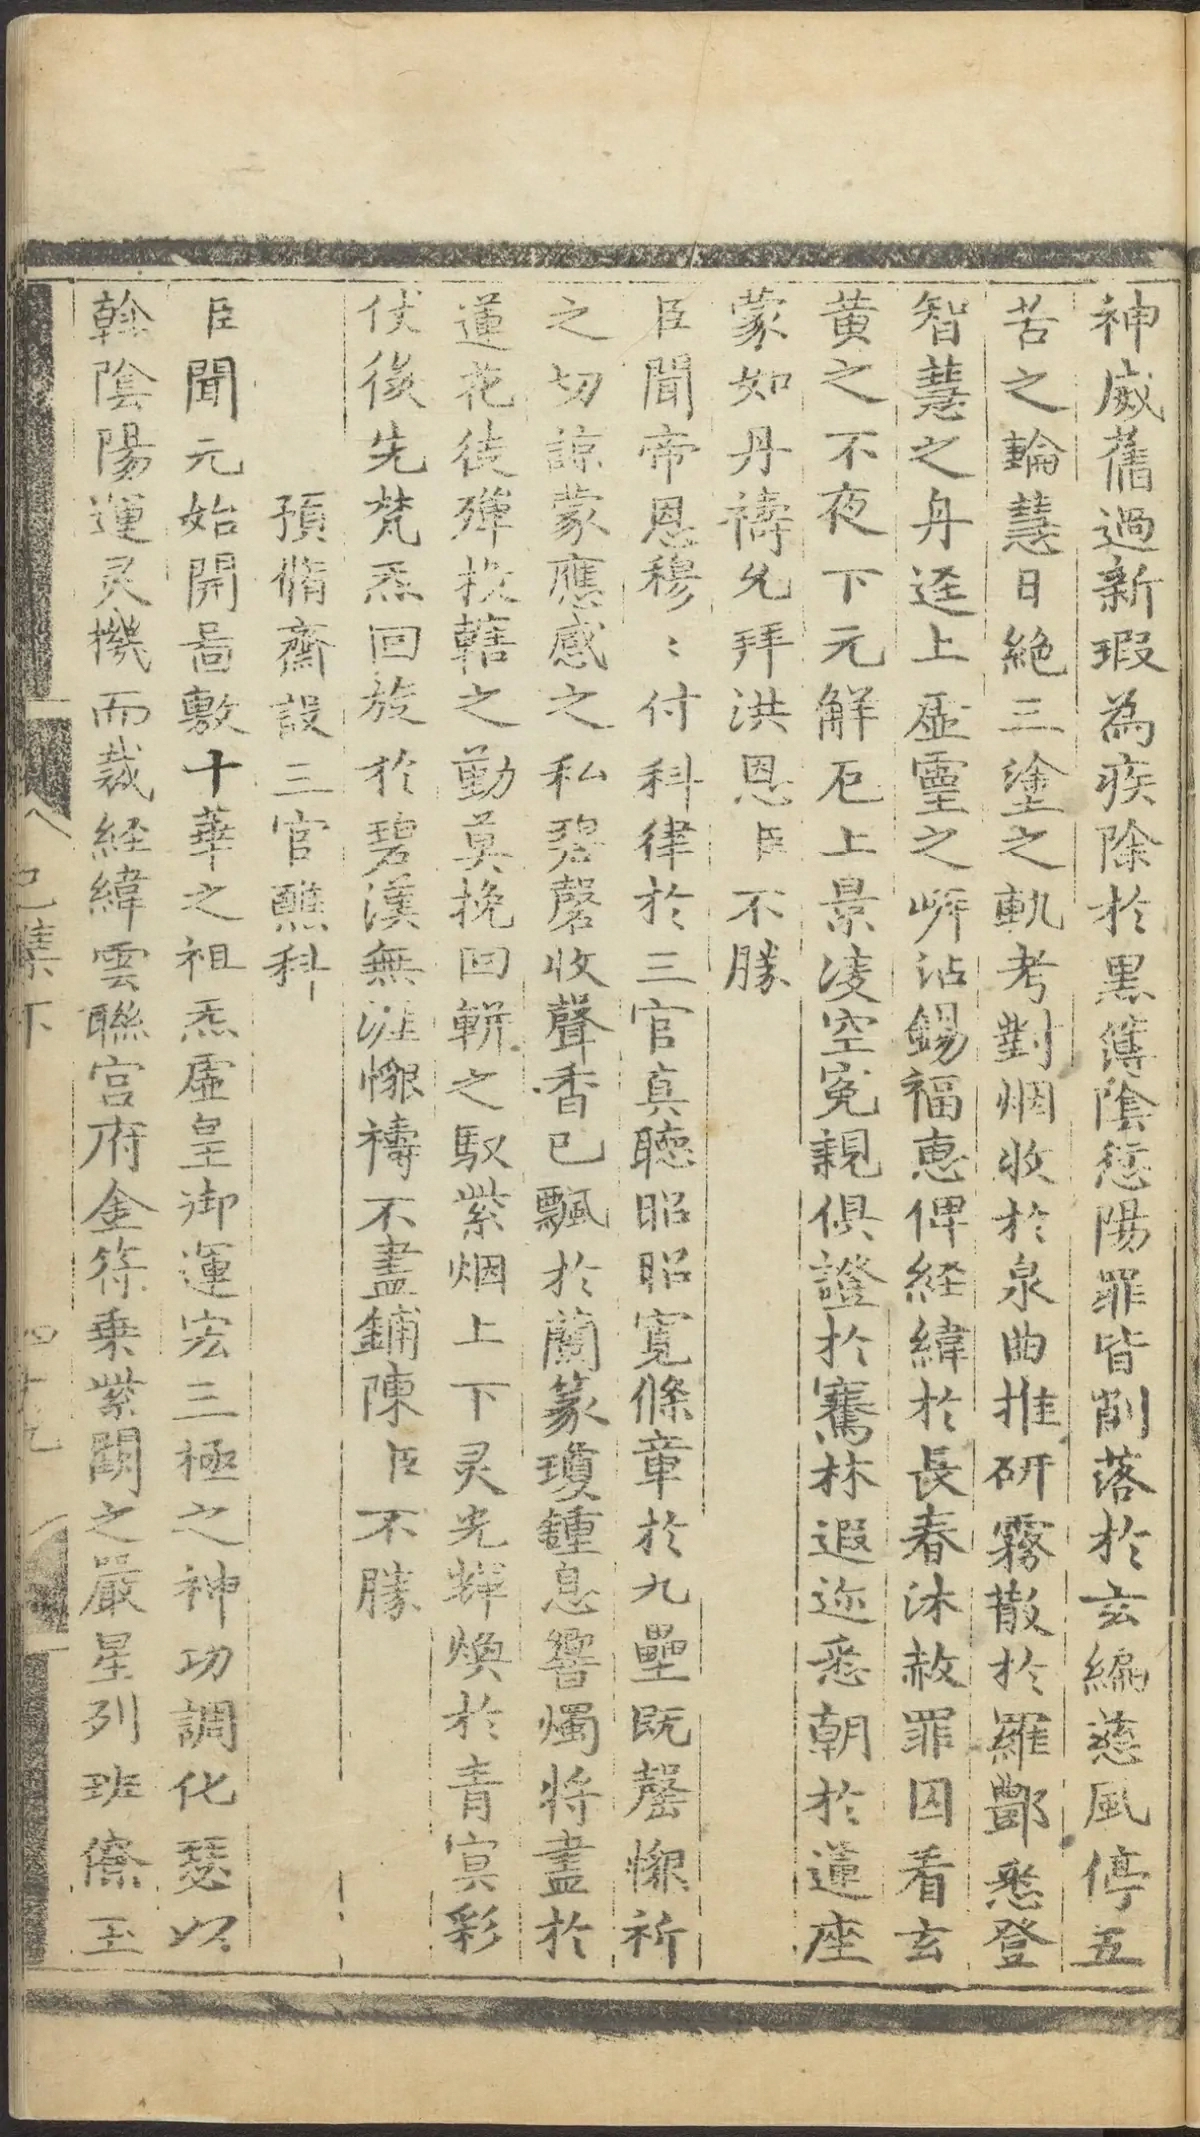 神威舊過新瑕為疾除於黑簿陰愆陽罪皆削落於玄編慈風停五
苦之輪慧日絶三塗之軌考對烟收於泉曲推研霧散於羅酆悉登
智慧之丹逕上虛靈之岸沾錫福惠俾経緯於長春沐赦罪囚看玄
黄之不夜下元解厄上景凌空冤親俱證於騫林遐迩悉朝於蓮座
蒙如丹禱允拜洪恩臣不勝
臣聞帝恩穆〻付科律於三官真聴昭昭寛條章於九壘既罄懒祈
之切諒蒙應感之私碧磬收聲香已飄於蘭篆瓊鍾息響燭将盡於
蓮花徒殫投轄之勤莫挽回軿之馭紫烟上下灵光輝煥於青冥彩
仗後先梵炁回旋於碧漢無涯懒禱不盡鋪陳臣不勝
預脩齋設三官醮科
臣聞元始開啚敷十華之祖炁虛皇御運宏三極之神功調化瑟以
斡陰陽運灵機而裁経緯雲聯宫府金符乗紫闕之嚴星列班僚玉
巳集下
四十九